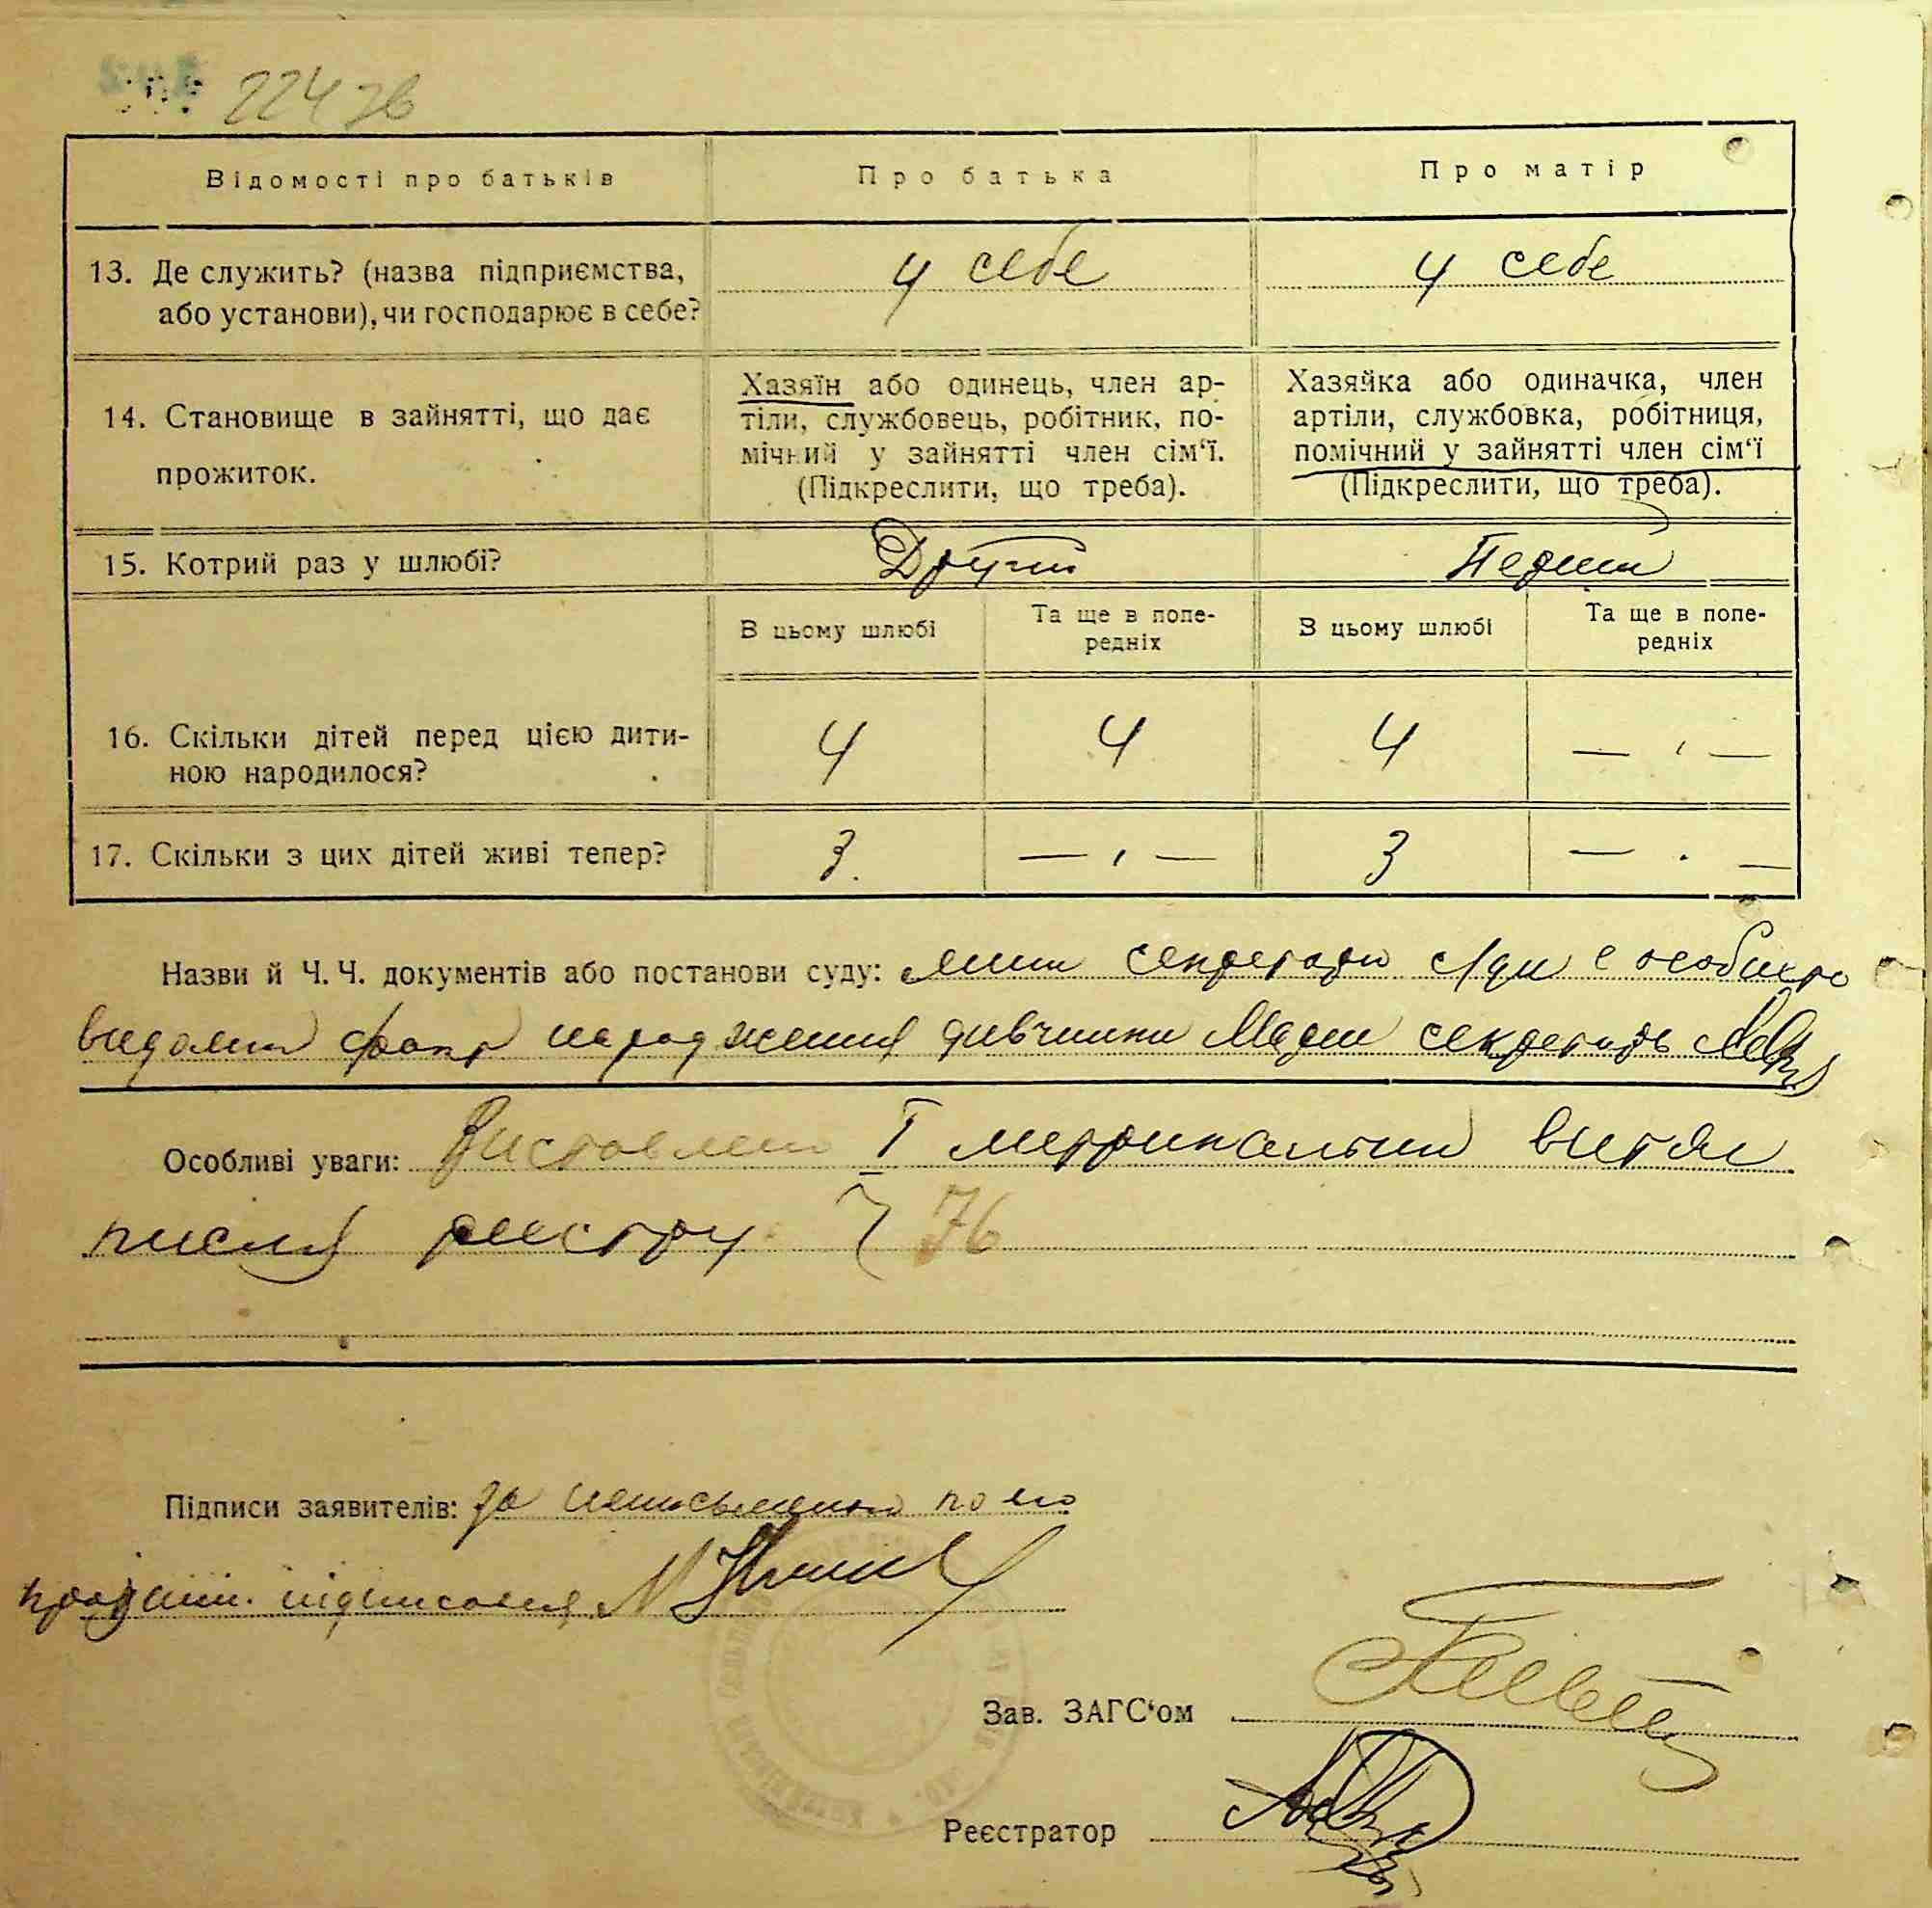 22476
Відомості про батьків
Про батька
Про матір
13. Де служить? (назва підприємства,
або установи), чи господарює в себе?
У себе
У себе
14. Становище в зайнятті, що дає
прожиток.
Хазяїн або одинець, член ар-
тіли, службовець, робітник, по-
мічний у зайнятті член сім‘ї.
(Підкреслити, що треба).
Хазяйка або одиначка, член
артіли, службовка, робітниця,
помічний у зайнятті член сім‘ї
(Підкреслити, що треба).
15. Котрий раз у шлюбі?
Другий
Перший
В цьому шлюбі
Та ще в попе-
редніх
В цьому шлюбі
Та ще в попе-
редніх
16. Скільки дітей перед цією дити-
ною народилося?
4
4
4
— " —
17. Скільки з цих дітей живі тепер?
3.
— " —
3
— " —
Назви й Ч. Ч. документів або постанови суду: мині секретарю с/ди є особисто
видомий факт народження дивчинки Марии секретарь
Особливі уваги: Виставлено І метрикальний витяг
писля реєстру 76
Підписи заявителів: за неписьменного по его
підписался
Зав. ЗАГС‘ом
Реєстратор